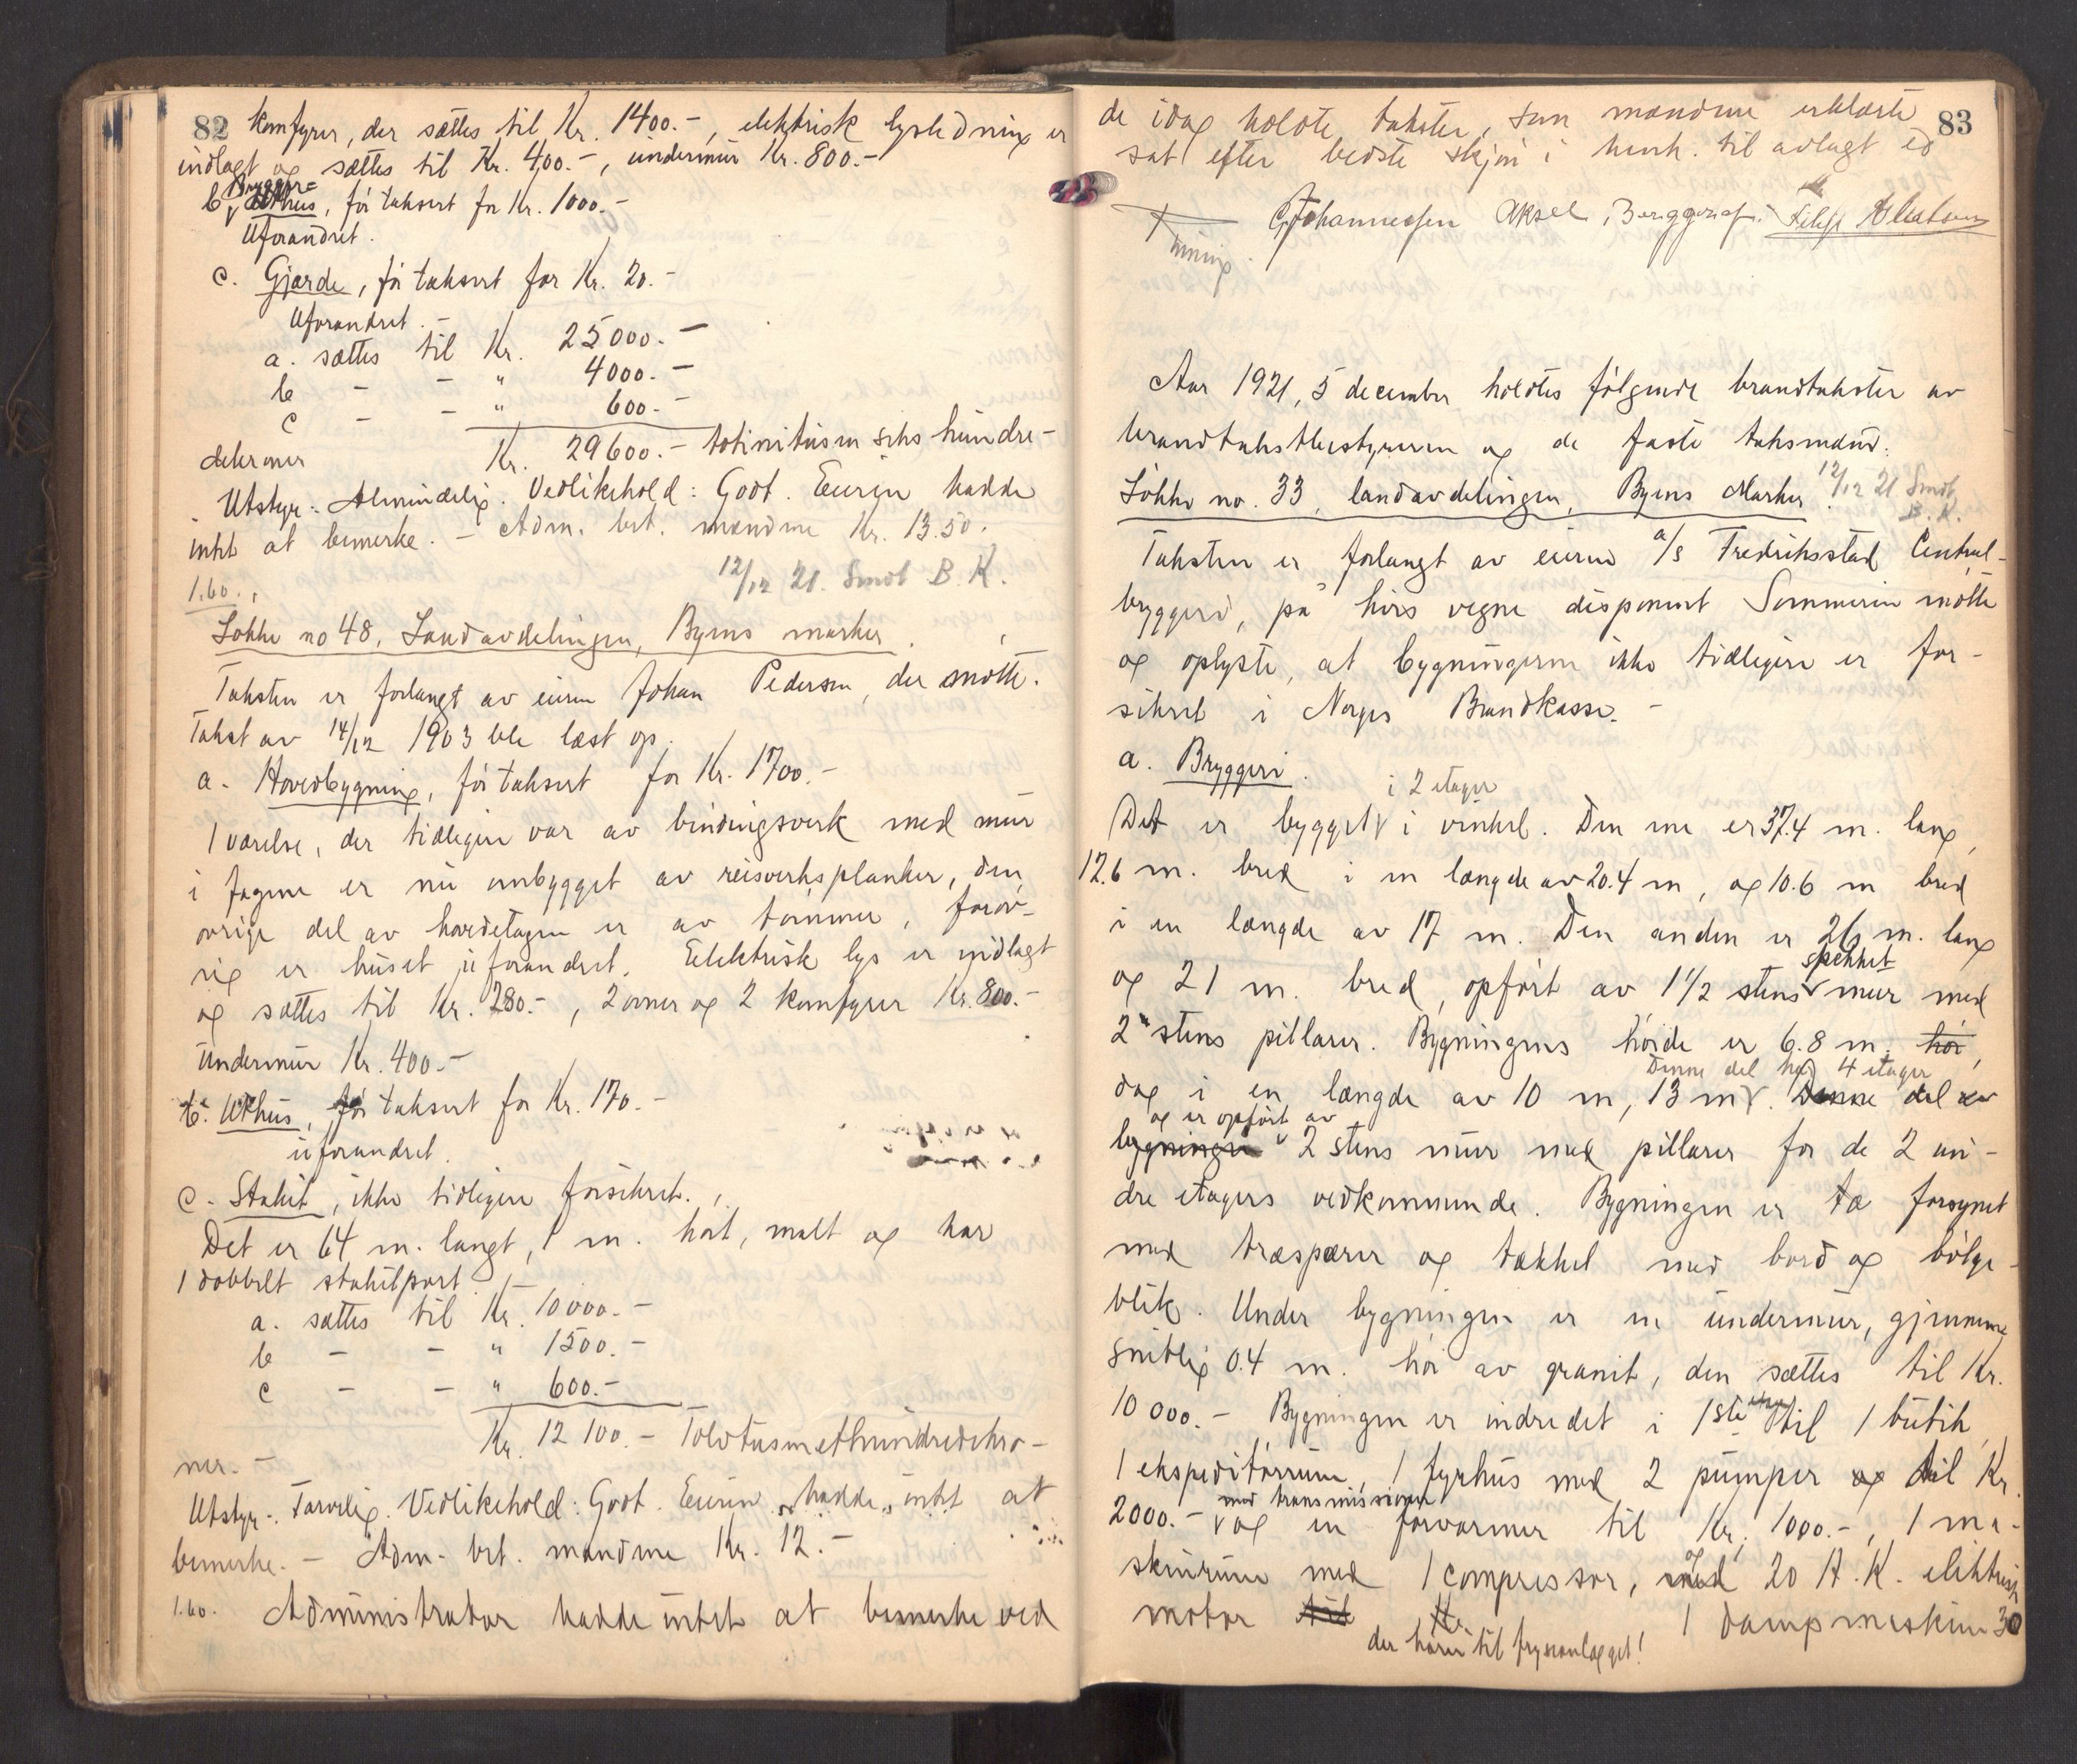 82 komfyrer, der sættes til Kr. 1400.-, elektrisk lysledning er
indlagt og sættes til Kr. 400.-, undermur Kr. 800.-
b. Brygger-
Uthus, før taksert for Kr. 1000.-
Uforandret.
c. Gjærde, før taksert for Kr. 20.-
Uforandret.-
a. sættes til Kr. 25000.-
b - - " 4000.-
c - - " 600.-
Kr. 29600.- totinitusen seks hundre-
dekroner
Utstyr: Almindelig. Vedlikehold: Godt. Eieren hadde
intet at bemerke. - Adm. bet. mændene Kr. 13.50.
1.60. 12/12 21. Sendt B. K.
Løkke no 48, Landavdelingen, Byens marker.
Taksten er forlangt av eieren Johan Pedersen, der møtte.
Takst av 14/12 1903 ble læst op.
a. Hovedbygning, før taksert for Kr. 1700.-
1 værelse, der tidligere var av bindingsverk med mur
i fagene er nu ombygget av reisverksplanker, den
øvrige del av hovedetagen er av tømmer, forøv-
rig er huset uforandret. Elektrisk lys er indlagt
og sættes til Kr. 280.-, 2 ovner og 2 komfyrer Kr. 800.-
Undermur Kr. 400.-
b. Uthus, før taksert for Kr. 170.-
uforandret.
c. Stakit, ikke tidligere forsikret.
Det er 64 m. langt, 1 m. høit, malt og har
1 dobbelt stakitport.
a. sættes til Kr. 10000.-
b - - " 1500.-
c - - " 600.-
Kr. 12 100.- Tolvtusenethundredekro-
ner.-
Utstyr: Tarvelig. Vedlikehold: Godt. Eieren hadde intet at
bemerke. - Adm. bet. mændene Kr. 12.-
1.60. Administrator hadde intet at bemerke ved
83
de idag holdte takster, som mændene erklærte
sat efter bedste skjøn i henh. til avlagt ed
Johannessen Aksel
Aar 1921, 5 december holdtes følgende brandtakster av
brandtakstbestyreren og de faste taksmænd.
Løkke no. 33, landavdelingen, Byens Marker. 12/12 21 Sendt
B. K.
Taksten er forlangt av eieren a/s Fredriksstad Central-
bryggeri, på hvis vegne disponent Sommerin møtte
og oplyste, at bygningerne ikke tidligere er for-
sikret i Norges Brandkasse.-
a. Bryggeri.
i 2 etager
Det er bygget i vinkel. Den ene er 37.4 m. lang,
12.6 m. bred i en længde av 20.4 m, og 10.6 m bred
i en længde av 17 m. Den anden er 26 m. lang
spekket
og 21 m. bred, opført av 1 1/2 stens mur med
2 stens pillarer. Bygningens høide er 6.8 m. høi,
Denne del har 4 etager
dog i en længde av 10 m, 13 m. Denne del av
og er opført av
bygningen 2 stens mur med pillarer for de 2 un-
dre etagers vedkommende. Bygningen er ta forsynet
med træspærer og tækket med bord og bølge-
blik. Under bygningen er en undermur, gjennem-
snitlig 0.4 m. høi av granit, den sættes til Kr.
10 000.- Bygningen er indredet i 1ste etage til 1 butik,
1 ekspeditørrum, 1 fyrhus med 2 pumper og til Kr.
med transmissioner
2000.- og en forvarmer til Kr. 1000.-, 1 ma-
skinrum med 1 compressor, med og 20 H.K. elektrisk
motor til Kr. 1 dampmaskin 30
der hører til fryseanlægget!